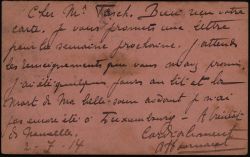 Cher Mr Pasch. Bien reçu votre
carte. Je vous promets une lettre
pour la semaine prochaine. J'attends
les renseignements que vous m'avez promis.
J'ai été quelques jours au lit et la
mort de ma belle-soeur
pas encore été à Luxembourg - A bientôt
de Nouvelles. Cordialement
2-7-14